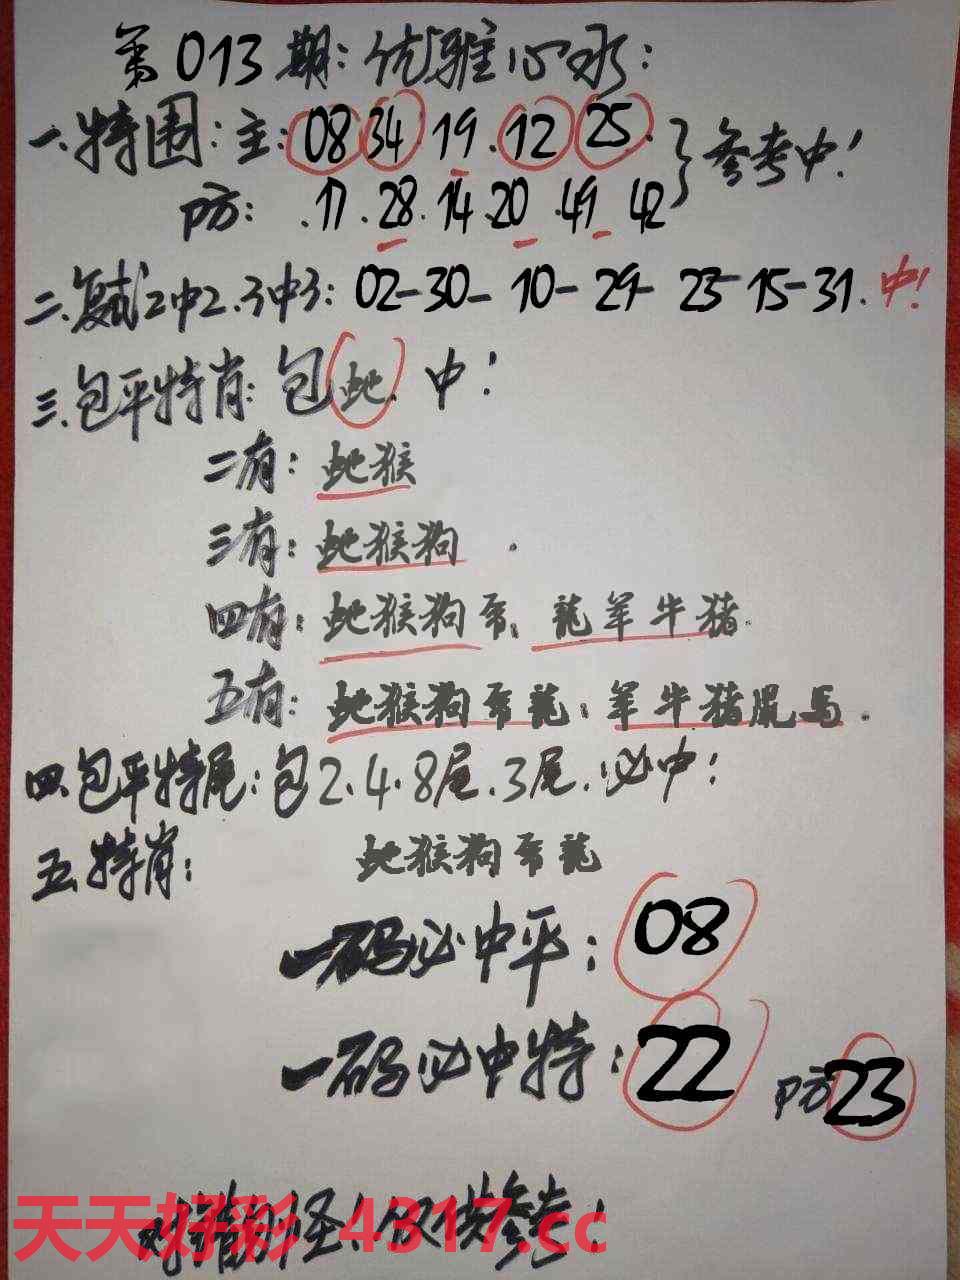 第013期:优雅心水:
一.特围:主:08 34.19.12 25. 参考中!
防: .17.28.14.20.49 42
二.复试2中2.3中3: 02-30-10-29-23-15-31.中!
三.包平特肖:包蛇.中!
二有:蛇猴
三有:蛇猴狗.
四有:蛇猴狗 龍羊牛猪.
五有:蛇猴狗 龍:羊牛猪鼠马.
四.包平特尾:包2.4.8尾.3尾.必中!
五.特肖: 蛇猴狗 龍
一码必中平:08
一码必中特:22 防23
对错勿怪!仅供参考!
天天好彩 4317.cc